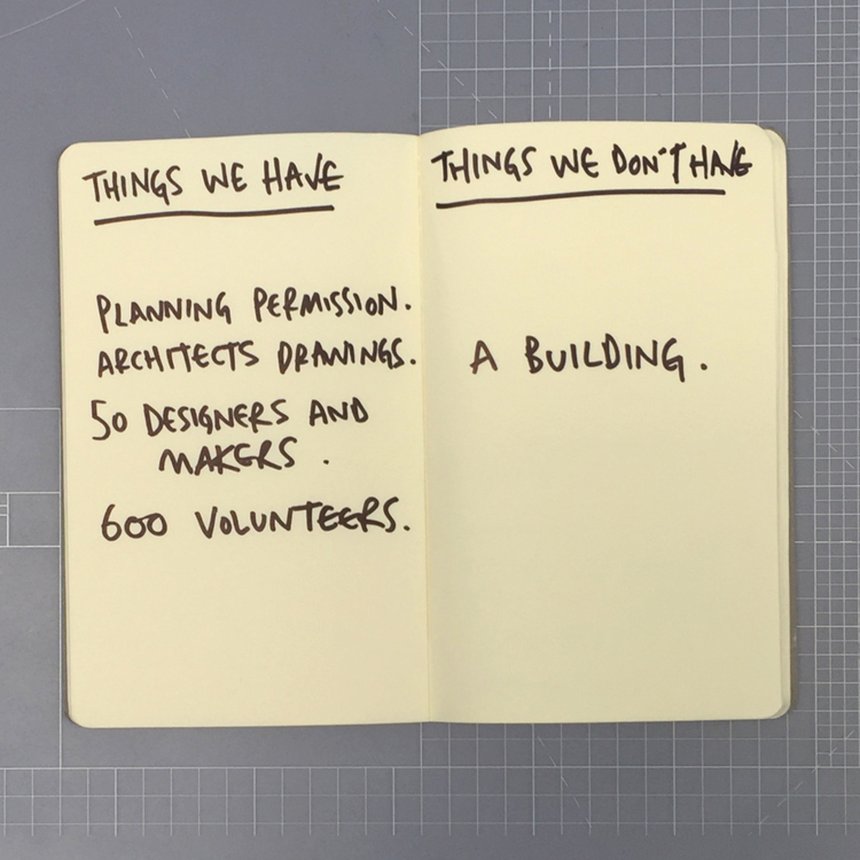 THINGS WE HAVE
PLANNING PERMISSION.
ARCHITECTS DRAWINGS.
50 DESIGNERS AND
MAKERS .
600 VOLUNTEERS.
THINGS WE DON'T HAVE
A BUILDING.